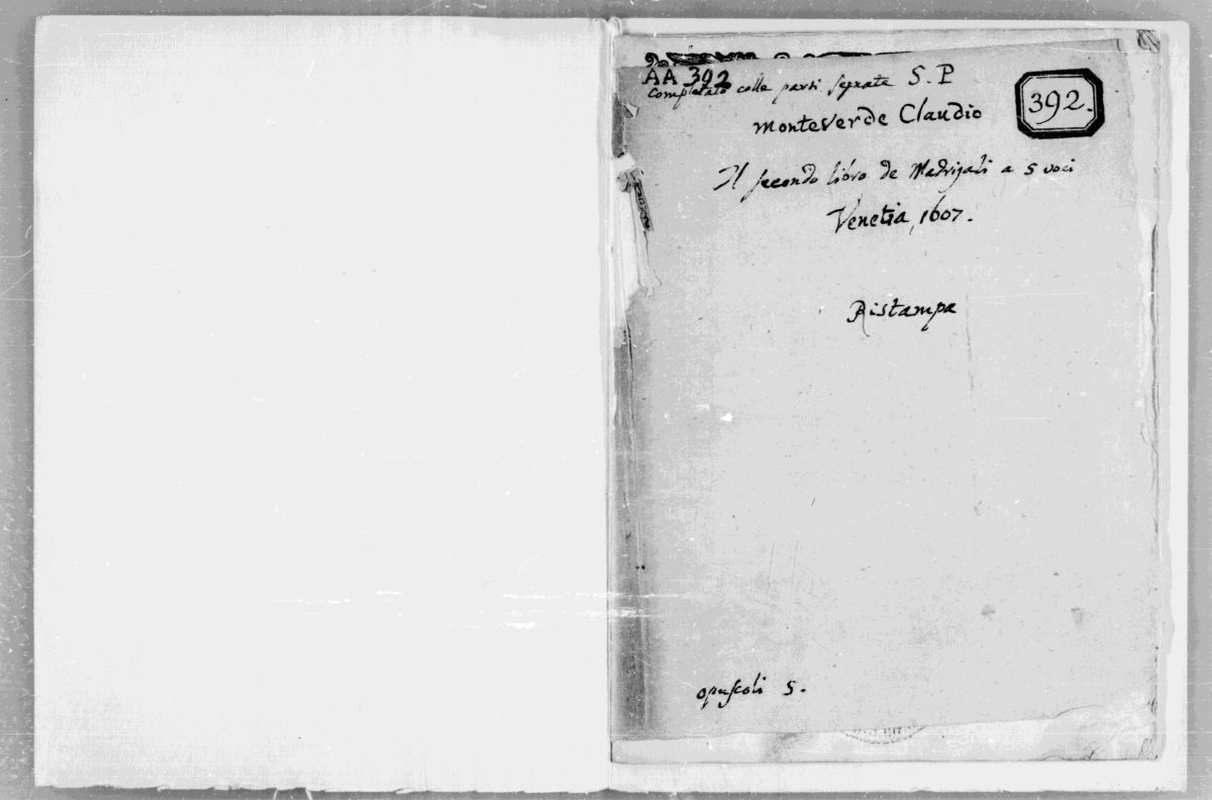 AA 392
completato colle parti separate S. P
392.
Monteverde Claudio
Il secondo libro de Madrigali a 5 voci
Venetia, 1607.
Ristampa
opuscoli 5.